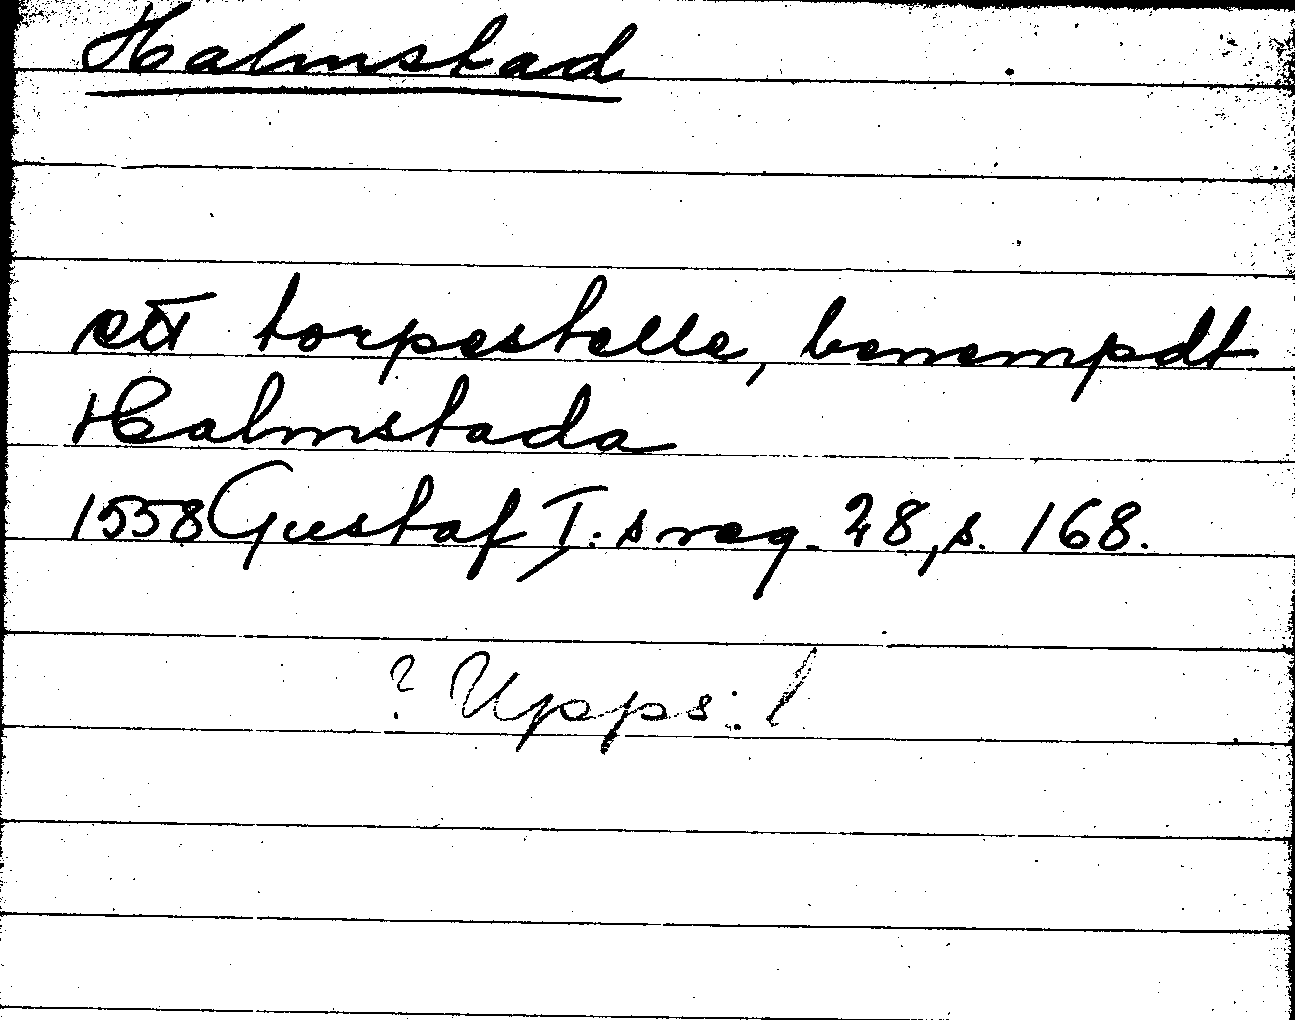 Halmstad
ett torpestelle, benempdt
Halmstada
1558 Gustaf I:s reg. 28, s. 168.
? Upps. l